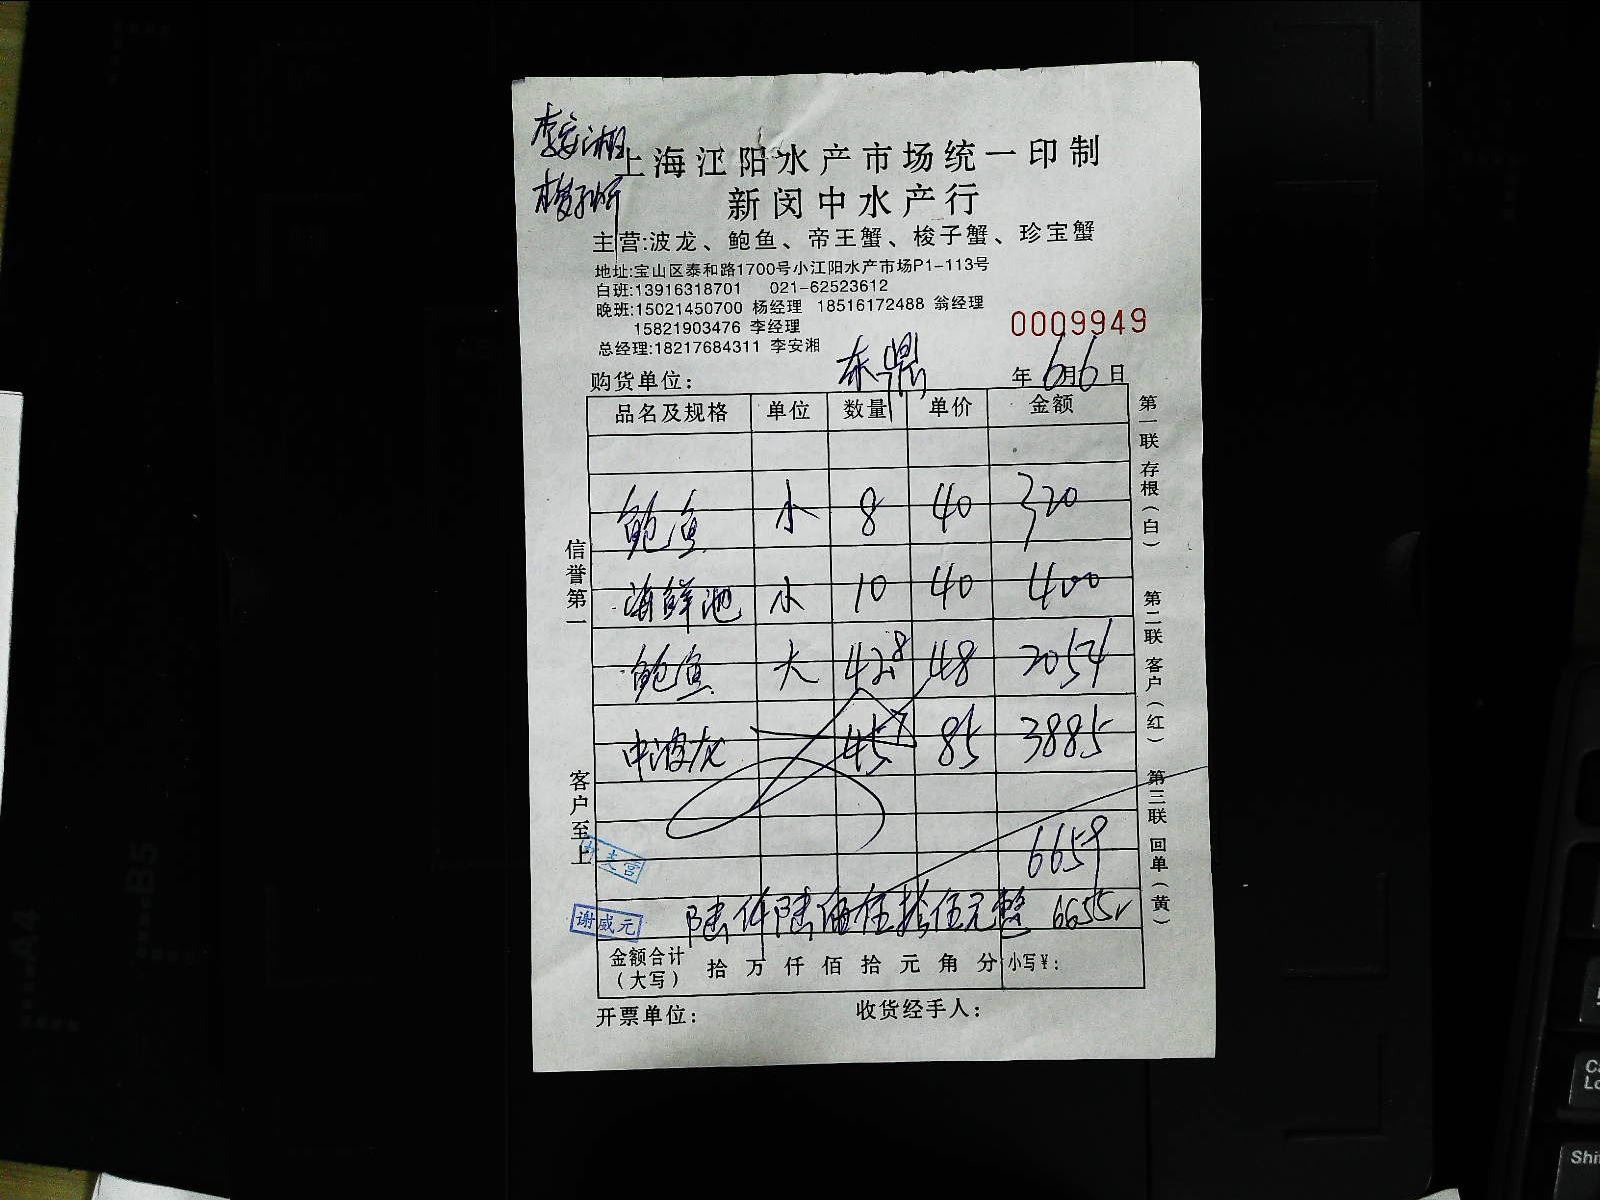 李安湘
上海江阳水产市场统一印制
新闵中水产行
主营:波龙、鲍鱼、帝王蟹、梭子蟹、珍宝蟹
地址:宝山区泰和路1700号小江阳水产市场P1-113号
白班:13916318701 021-62523612
晚班:15021450700 杨经理 18516172488 翁经理
15821903476 李经理
总经理:18217684311 李安湘
0009949
购货单位: 东鼎 年6月6日
品名及规格 单位 数量 单价 金额
鲍鱼 小 8 40 320
海鲜池 小 10 40 400
鲍鱼 大 42.8 48 2054
中波龙 457 85 3885
6659
陆仟陆佰伍拾伍元整 6655
金额合计(大写) 拾万仟佰拾元角分 小写¥:
开票单位: 收货经手人:
信誉第一
客户至上
谢威元
第一联 存根(白)
第二联 客户(红)
第三联 回单(黄)